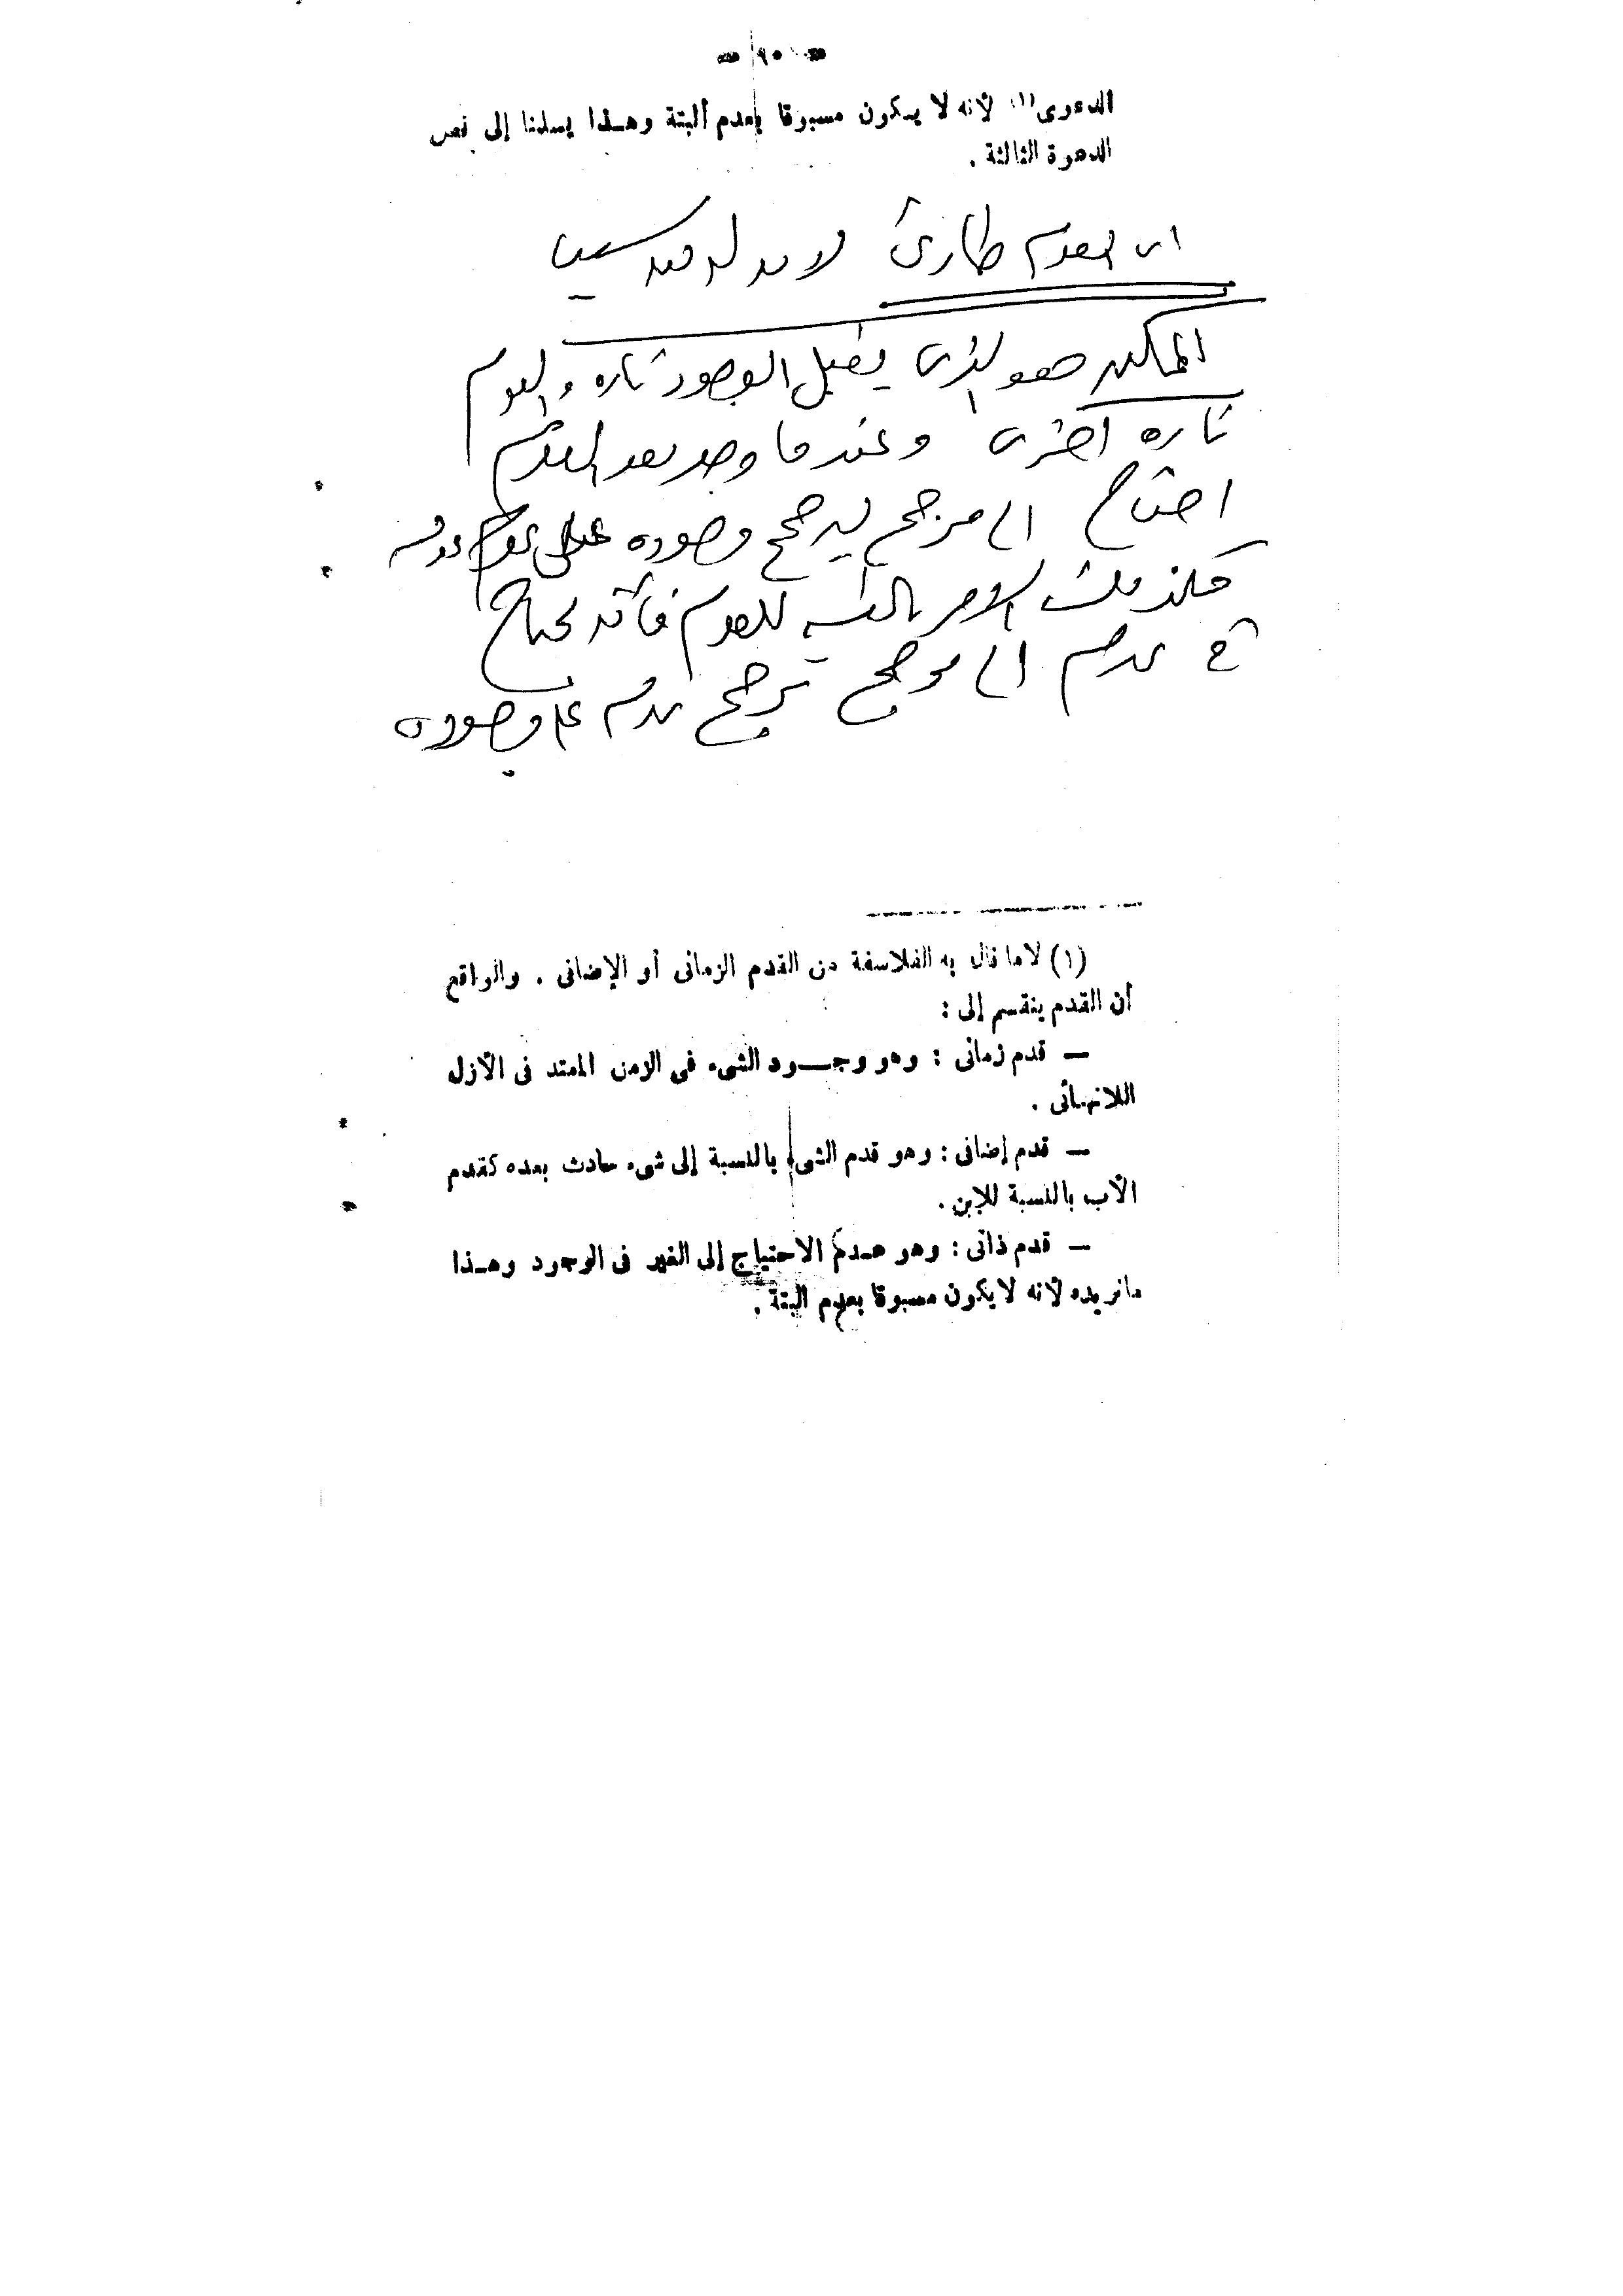 — ٩٠ —
الدعوى(١) لأنه لا يكون مسبوقا بعدم ألبتة وهذا يسلمنا إلى نص
الدعوة الثالثة .
العدم طارئ لا بد له من سبب
الممكن هو الذى يقبل الوجود تاره والعدم
تاره اخرى وعندما وجد بعد العدم
احتاج الى مرجح يرجح وجوده على عدمه
فكذلك الامر بالنسبه للعدم فانه يحتاج
فى عدمه الى مرجح يرجح عدمه على وجوده
(١) لا ما قال به الفلاسفة من القدم الزمانى أو الإضافى . والواقع
أن القدم ينقسم إلى :
— قدم زمانى : وهو وجود الشىء فى الزمن الممتد فى الأزل
اللانهائى .
— قدم إضافى : وهو قدم الشىء بالنسبة إلى شىء حادث بعده كقدم
الأب بالنسبة للإبن .
— قدم ذاتى : وهو عدم الاحتياج إلى الغير فى الوجود وهذا
مانريده لأنه لايكون مسبوقا بعدم البتة .